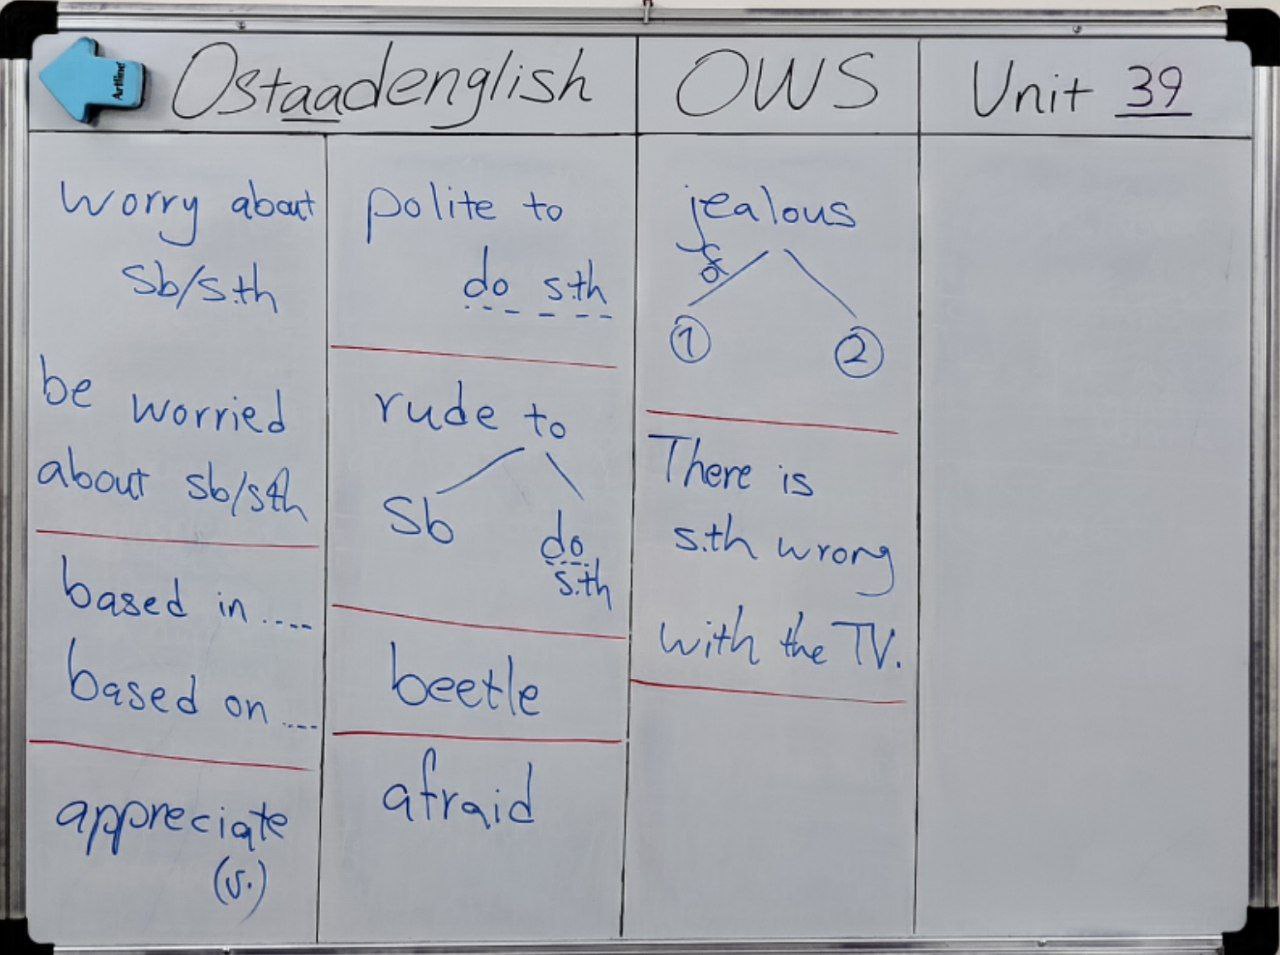 Artline
Ostaadenglish
OWS
Unit 39
worry about
sb/s.th
be worried
about sb/sth
based in ....
based on ....
appreciate
(v.)
polite to
do s.th
rude to
sb
do
s.th
beetle
afraid
jealous
of
1 2
There is
s.th wrong
with the TV.